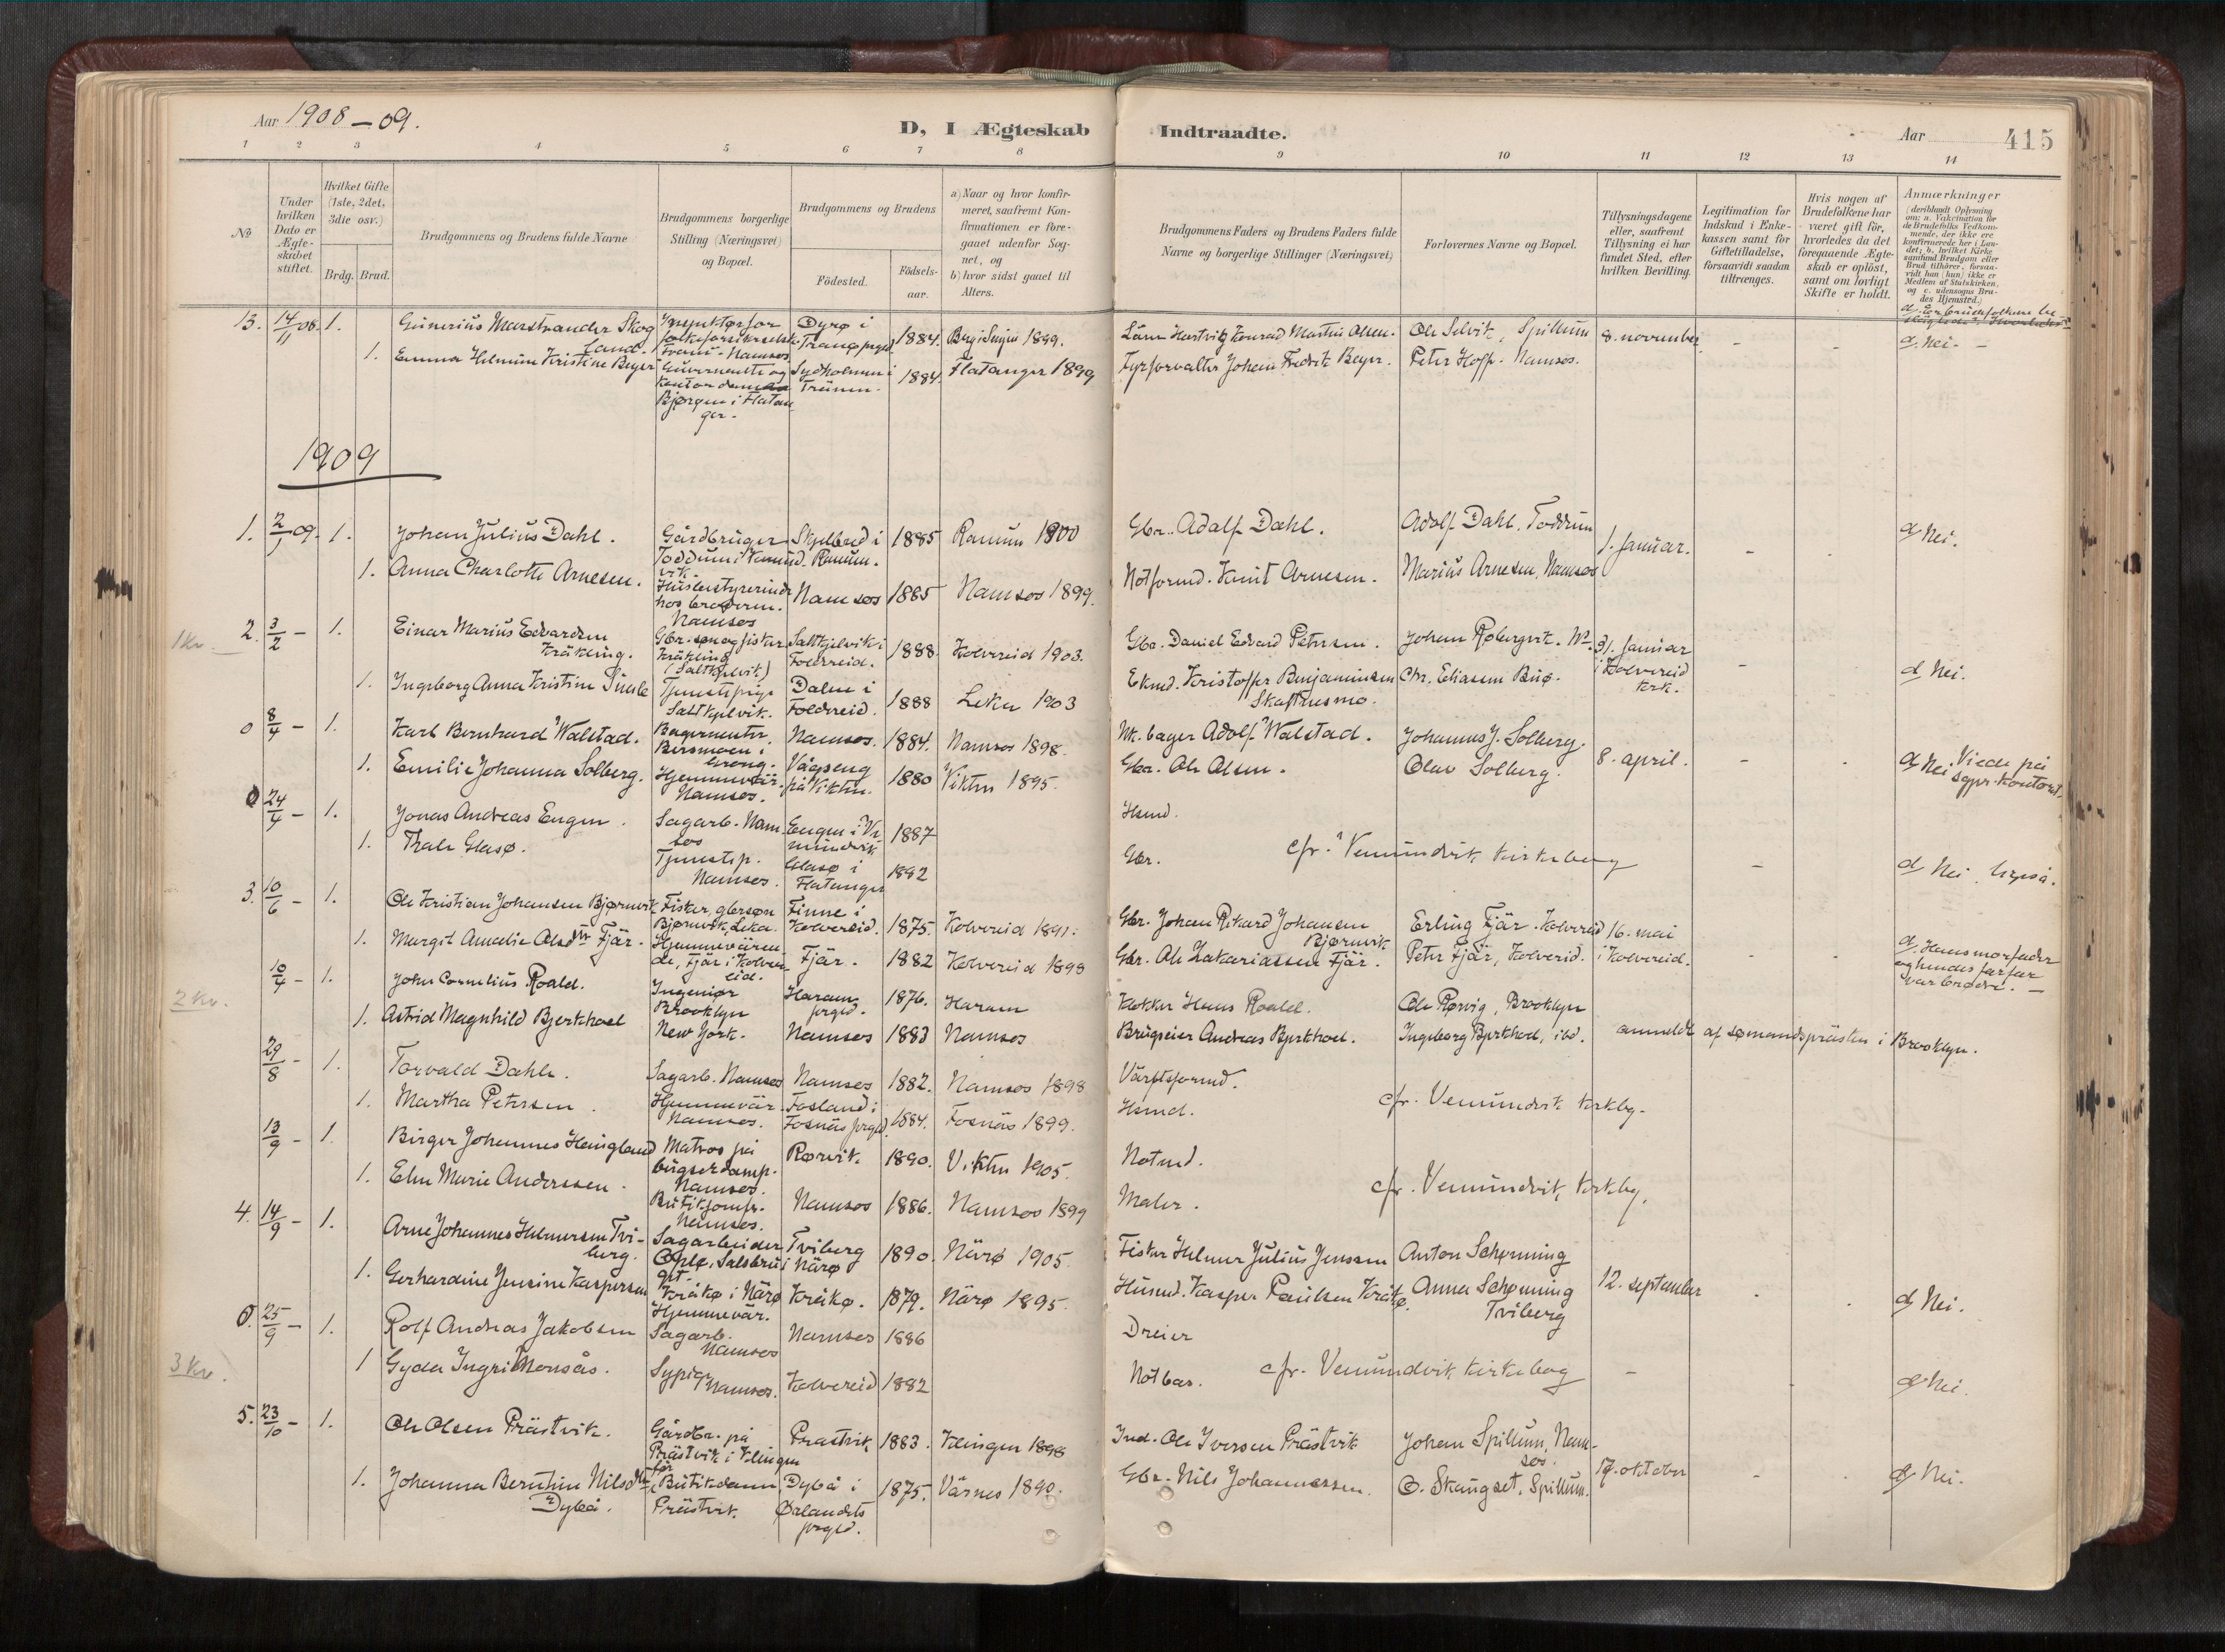 Aar 1908-09.
D, I Ægteskab Indtraadte.
Aar
415
1 2 3 4 5 6 7 8 9 10 11 12 13 14
No
Under hvilken Dato er Ægteskabet stiftet.
Hvilket Gifte (1ste, 2det, 3die osv.)
Brdg. Brud.
Brudgommens og Brudens fulde Navne
Brudgommens borgerlige Stilling (Næringsvei) og Bopæl.
Brudgommens og Brudens
Födested.
Födsels-aar.
a) Naar og hvor konfir-
meret, saafremt Kon-
firmationen er fore-
gaaet udenfor Sog-
net, og
b) hvor sidst gaaet til
Alters.
Brudgommens Faders og Brudens Faders fulde
Navne og borgerlige Stillinger (Næringsvei)
Forlovernes Navne og Bopæl.
Tillysningsdagene
eller, saafremt
Tillysning ei har
fundet Sted, efter
hvilken Bevilling.
Legitimation for
Indskud i Enke-
kassen samt for
Giftetilladelse,
forsaavidt saadan
tiltrænges.
Hvis nogen af
Brudefolkene har
været gift för,
hvorledes da det
foregaaende Ægte-
skab er oplöst,
samt om lovligt
Skifte er holdt.
Anmærkninger
(deriblandt Oplysning
om: a. Vaccination for
de Brudefolks Vedkom-
mende, der ikke ere
konfirmerede her i Lan-
det; b. hvilket Kirke-
samfund Brudgom eller
Brud tilhörer, forsaa-
vidt han (hun) ikke er
Medlem af Statskirken,
og c. udensogns Bru-
des Hjemsted.)
13. 14/11 08. 1. Gunerius Marstrander Skogland. 1884. Berg i Senjen 1899. Konrad Martin Olsen. Ole Selvik, Spillum 8. november
1. Emma Helmine Kristine Beyer Bjørgen i Flatanger. 1884. Flatanger 1899 Fyrforvalter Johan Fredrik Beyer. Peter Hoff. Namsos. d, Nei.
1909
1. 2/1 09. 1. Johan Julius Dahl. Gårdbruger Skjelbred i Ranum. 1885 Ranum 1900 Gbr. Adolf Dahl. Adolf Dahl. Toddum 1. Januar. d, Nei.
1. Anna Charlotte Arnesen. Husbestyrerinde hos broderen. Namsos Namsos 1885 Namsos 1899. Notformd. Knut Arnesen. Marius Arnesen, Namsos
1 Kr. 2. 3/2 1. Einar Marius Edvardsen Kråkling. Gbr. søn og fisker Kråkling (Saltkjelvik) Saltkjelvik i Foldereid. 1888. Kolvereid 1903. Gbr. Daniel Edvard Petersen. 31. Januar i Kolvereid kirk.
1. Ingeborg Anna Kristine Tjenestepige Saltkjelvik. Dalen i Foldereid. 1888 Leka 1903 Kristoffer Benjaminsen Skaftnesmo. Chr. Eliasen Buø. d, Nei.
0 8/4 1. Karl Bernhard Walstad. Bagermester. Namsos. 1884. Namsos 1898. bager Adolf Walstad. Johannes J. Solberg. 8. april.
1. Emilie Johanna Solberg. Hjemmevär. Namsos. Vågseng på Vikten. 1880 Vikten 1895. Gbr. Ole Olsen. Olav Solberg. d, Nei Viede på sgpr. kontoret.
0 24/4 1. Jonas Andreas Engen. Sagarb. Namsos Engen i Vemundvik 1887 Hsmd.
1. Thale Glasø. Tjenestep. Namsos. Glasø i Flatanger 1892 Gbr. cfr. Vemundvik kirkebog d, Nei
3. 10/6 1. Ole Kristian Johansen Bjørnvik Fisker, gbrsøn Bjørnvik, Leka. Finne i Kolvereid. 1875. Kolvereid 1891. Gbr. Johan Rikard Johansen Bjørnvik Erling Fjär. Kolvereid 16. mai i Kolvereid.
1. Margit Amalie Olsdtr Fjär. Hjemmevärende, Fjär i Kolvereid. Fjär. 1882 Kolvereid 1898 Gbr. Ole Zakariassen Fjär. Peter Fjär, Kolvereid. d, Hans morfader og hendes farfar var brødre.
2 Kr. 10/4 1. John Cornelius Roald. Ingeniør Brooklyn New York. Haram prgd. 1876. Haram Klokker Hans Roald. Ole Rørvig, Brooklyn
1. Astrid Magnhild Bjerkhoel Namsos 1883 Namsos Brugseier Andreas Bjerkhoel. Ingeborg Bjerkhoel, ibd. anmeldt af sømandsprästen i Brooklyn.
29/8 1. Torvald Dahle. Sagarb. Namsos Namsos 1882. Namsos 1898 Värftsformd.
1. Martha Petersen. Hjemmevär. Namsos. Fosland i Fosnäs prgd. 1884. Fosnäs 1899. Hsmd. cfr. Vemundvik kirkbg.
13/9 1. Birger Johannes Haugland Matros på bugserdamp. Namsos. Rørvik 1890. Vikten 1905. Notmd.
1. Elen Marie Anderssen. Butikjomfr. Namsos. Namsos 1886. Namsos 1899 Maler. cfr. Vemundvik kirkbg.
4. 14/9 1. Arne Johannes Helmersen Tviberg. Sagarbeider Oplø, Salsbruget. Tviberg i Närø 1890. Närø 1905. Fisker Helmer Julius Jenssen Anton Schønning
1. Gerhardine Jensine Kaspersen Kråkø i Närø Hjemmevär. Kråkø. 1879. Närø 1895. Husmd. Kasper Paulsen Kråkø. Anna Schønning Tviberg 12. september d, Nei.
0. 25/9 1. Rolf Andreas Jakobsen Sagarb. Namsos Namsos 1886 Dreier
3 Kr. 1 Gyda Ingri Monsås. Sypige Namsos. Kolvereid 1882 Notbas. cfr. Vemundvik kirkebog d, Nei.
5. 23/10 1. Ole Olsen Prästvik. Gårdbr. på Prästvik i Klingen Prästvik 1883. Klingen 1898 Ind. Ole Iversen Prästvik Johan Spillum, Namsos.
1. Johanna Berntine Nilsdtr Dybå. Butikdame, Prästvik. Dybå i Ørlandets prgld. 1875. Värnes 1890. Gbr. Nils Johannessen. O. Skaugset, Spillum. 17. oktober d, Nei.